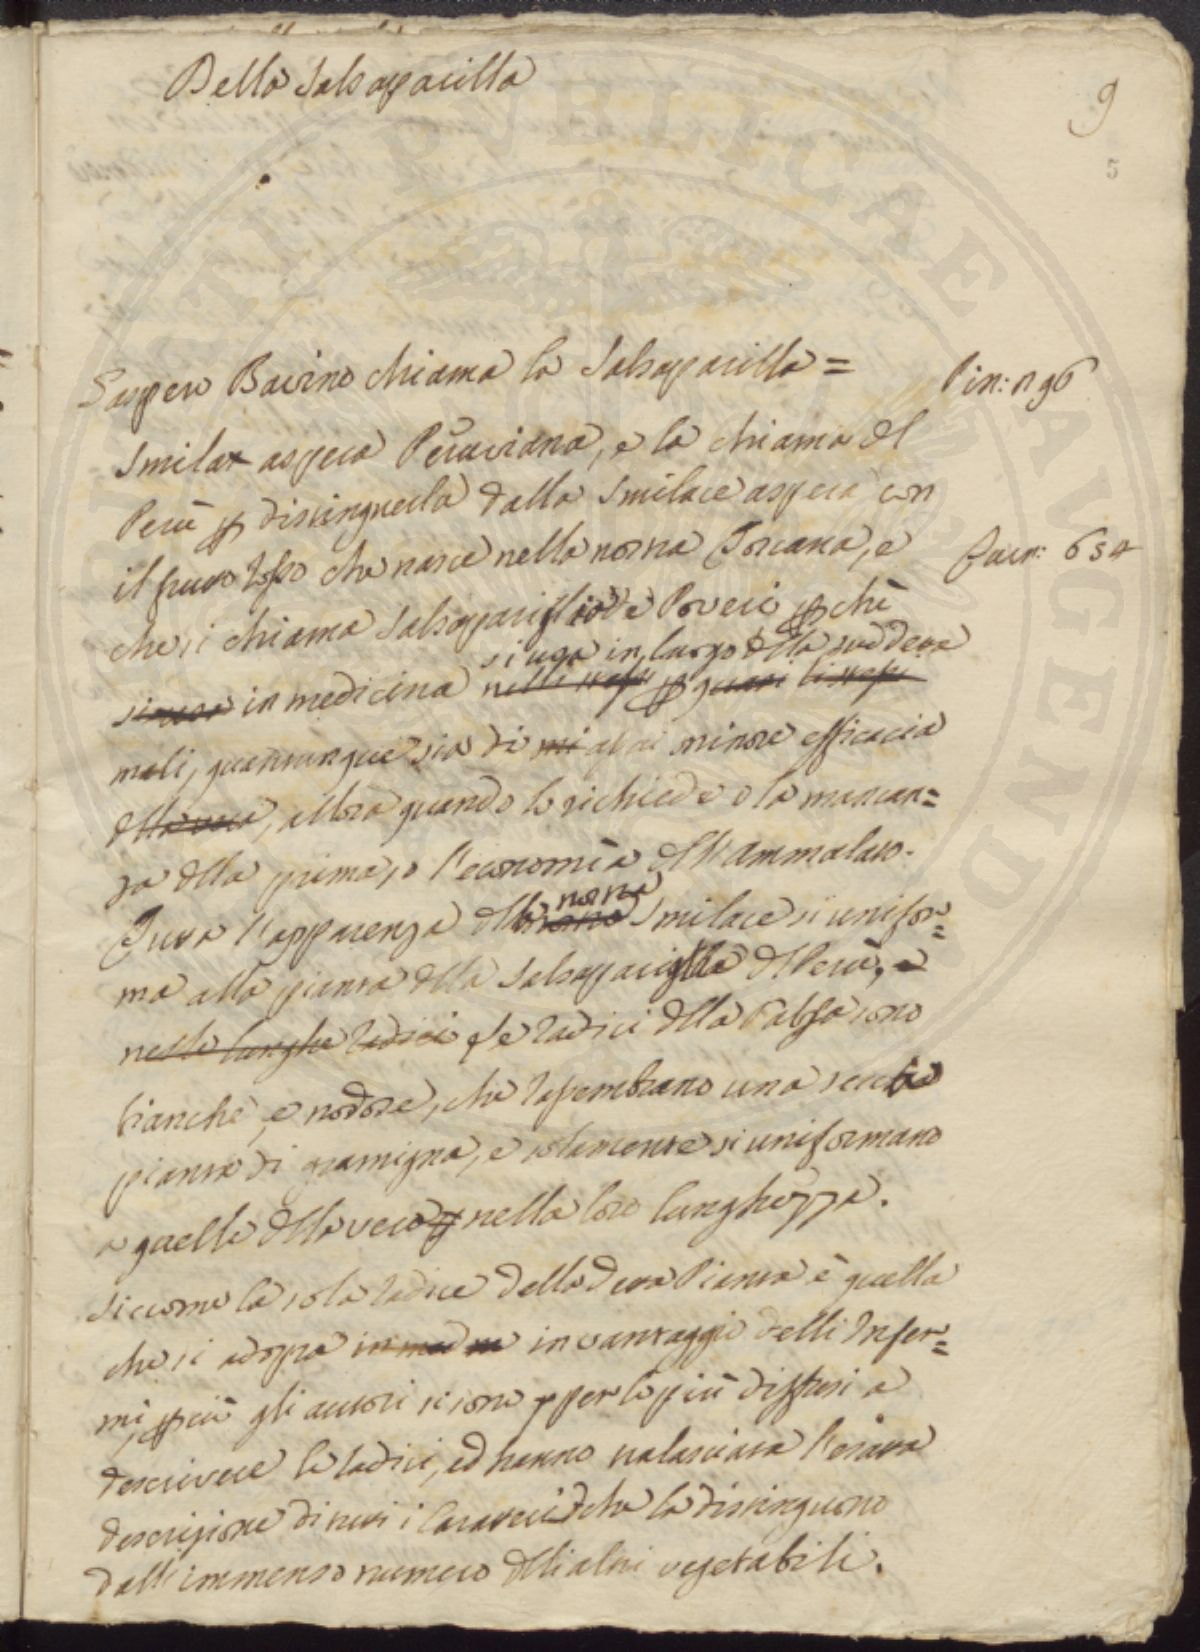 Della Salsapariglia
9
5
Gaspero Bavino chiama la Salsapariglia =
Pin: n 96
Smilax aspera Peruviana, e la chiama del
Perù p distinguerla dalla Smilace aspera con
il frutto rosso che nasce nella nostra Toscana, e
che si chiama Salsapariglia de Poveri p chè
si usa in luogo della suddetta
in medicina
mali, quantunque sia di assai minore efficacia
della vera, allora quando lo richiede o la mancan=
za della prima, o l'economia dell'Ammalato.
nostra
Tutta l'apparenza della Smilace si unifor=
ma alla pianta della Salsapariglia del Perù, e
nelle lunghe radici le radici della falsa sono
bianche, e nodose, che rassembrano una secca
pianta di gramigna, e solamente si uniformano
a quelle della vera nella loro lunghezza.
Siccome la sola radice della detta Pianta è quella
che si adopra in vantaggio delli Infer=
mi, p ciò gli autori si sono per lo più diffusi a
descrivere le radici, ed hanno tralasciata l'esatta
descrizione di tutti i Caratteri che la distinguono
dall'immenso numero delli altri vegetabili.